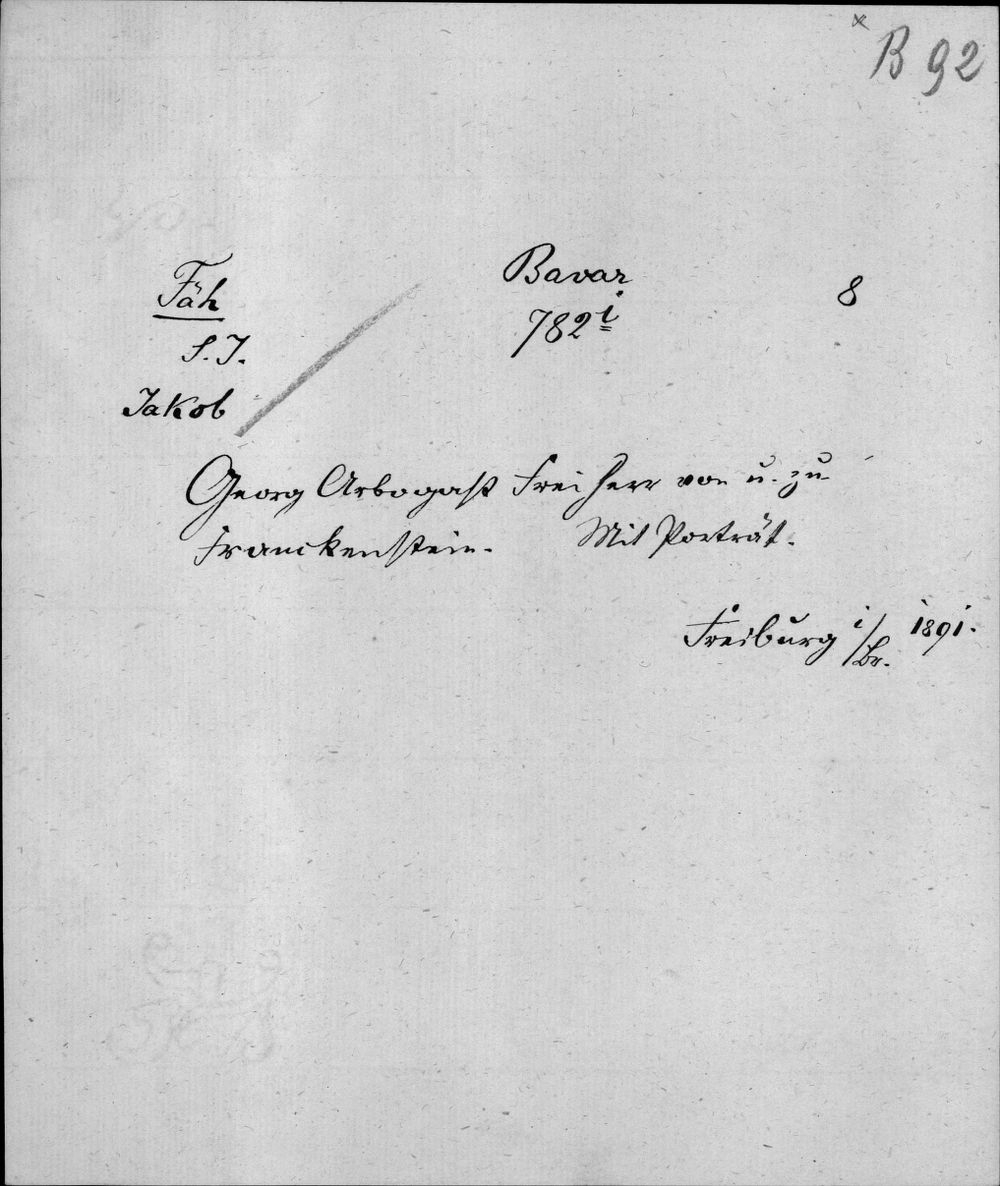 x B 92
Fäh
S. J.
Jakob
Bavar
782 i
8
Georg Arbogast Freiherr von u. zu
Franckenstein. Mit Porträt.
Freiburg i/Br. 1891.